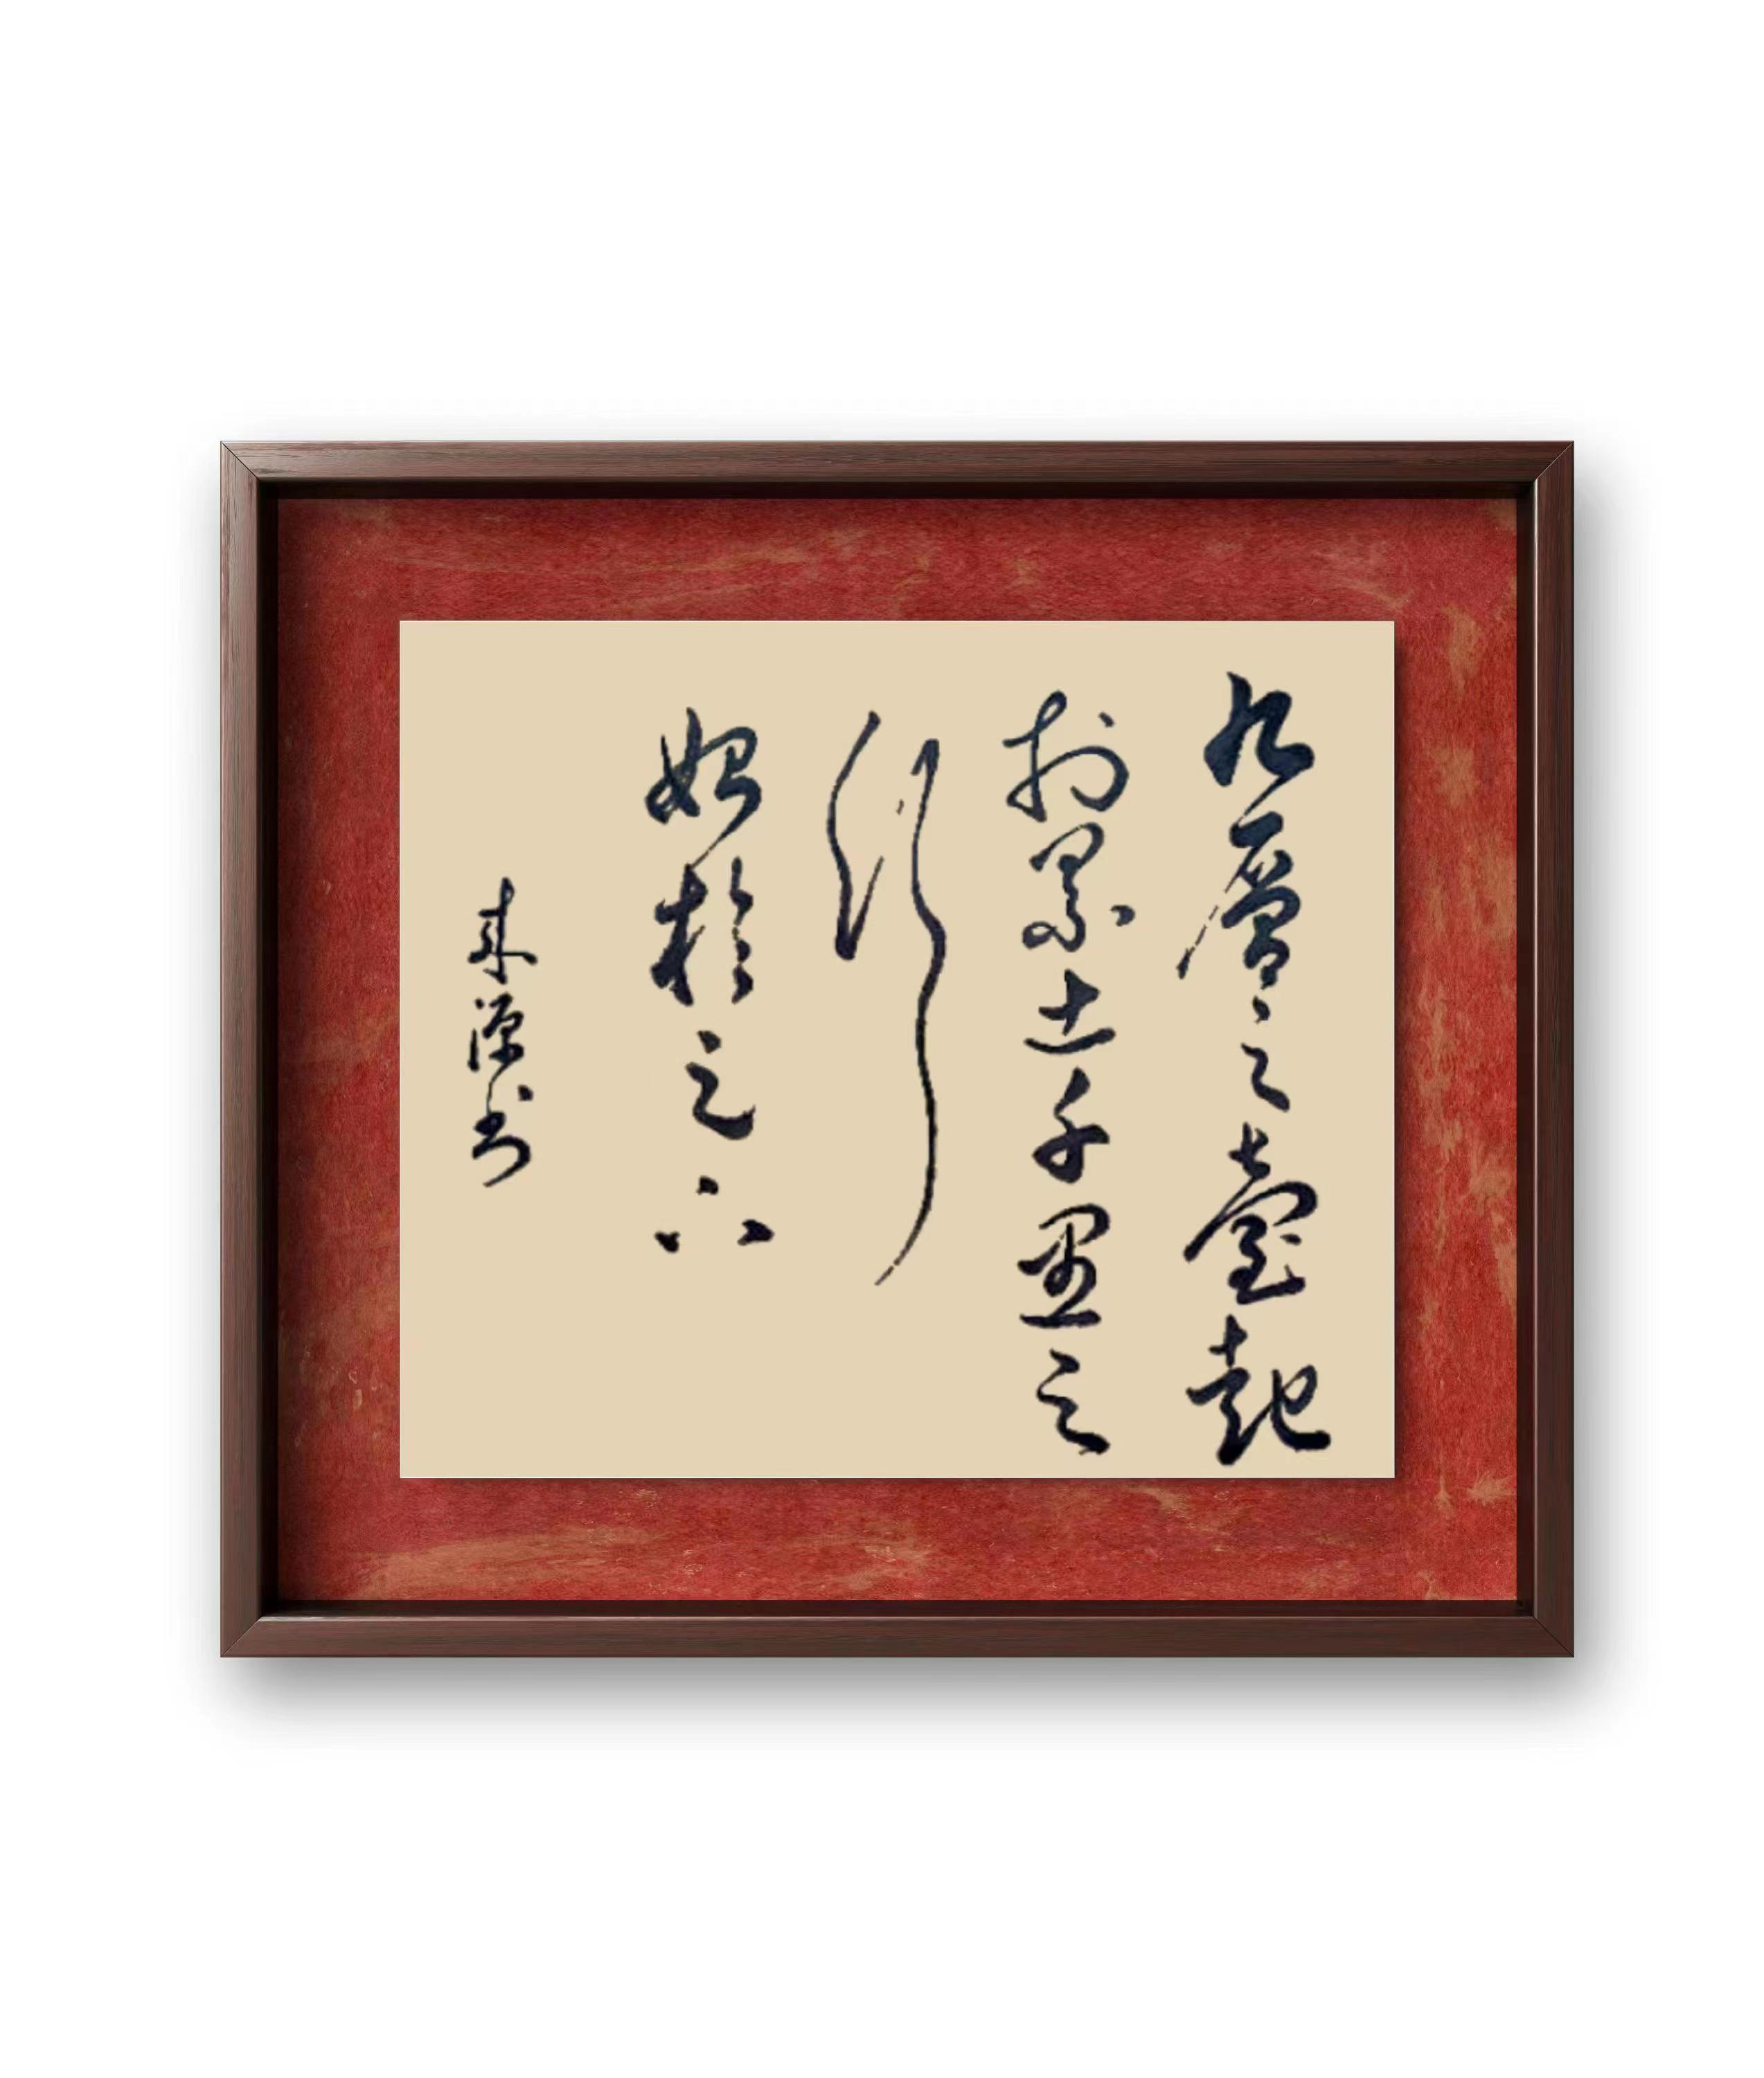 九層之臺起
於累土千里之
行
始於足下
来源书